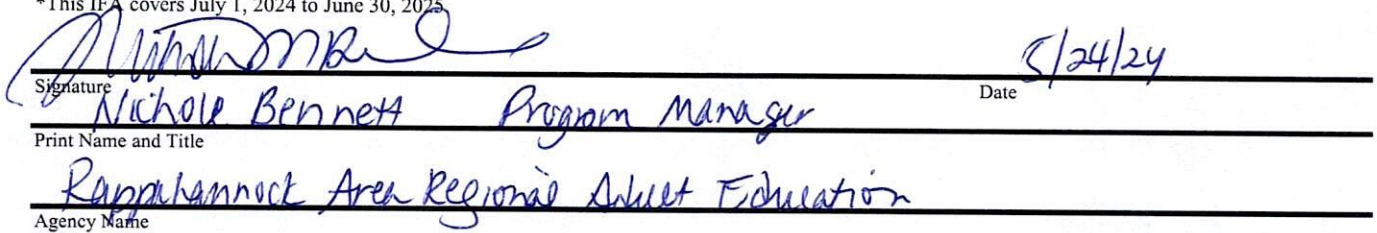 *This IFA covers July 1, 2024 to June 30, 2025.
5/24/24
Signature Date
Nichole Bennett Program Manager
Print Name and Title
Rappahannock Area Regional Adult Education
Agency Name